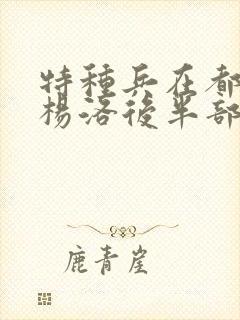 特種兵在都
楊洛後半部
鹿青崖